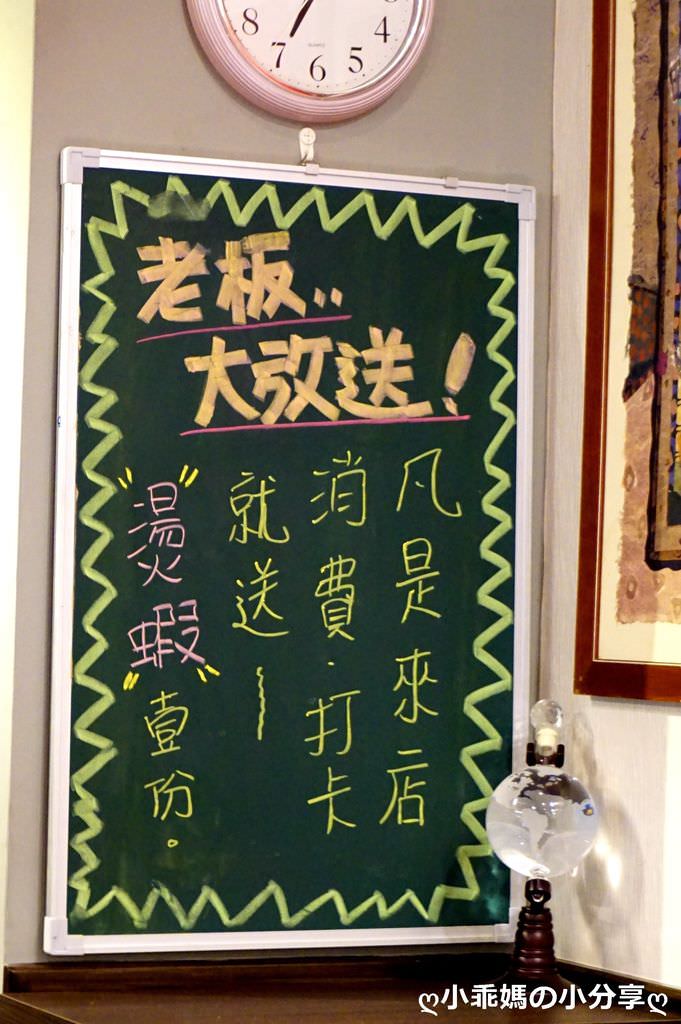 8
7
6
5
4
QUARTZ
老板..
大放送！
凡是來店
消費．打卡
就送～
"燙蝦"壹份。
ღ小乖媽の小分享ღ